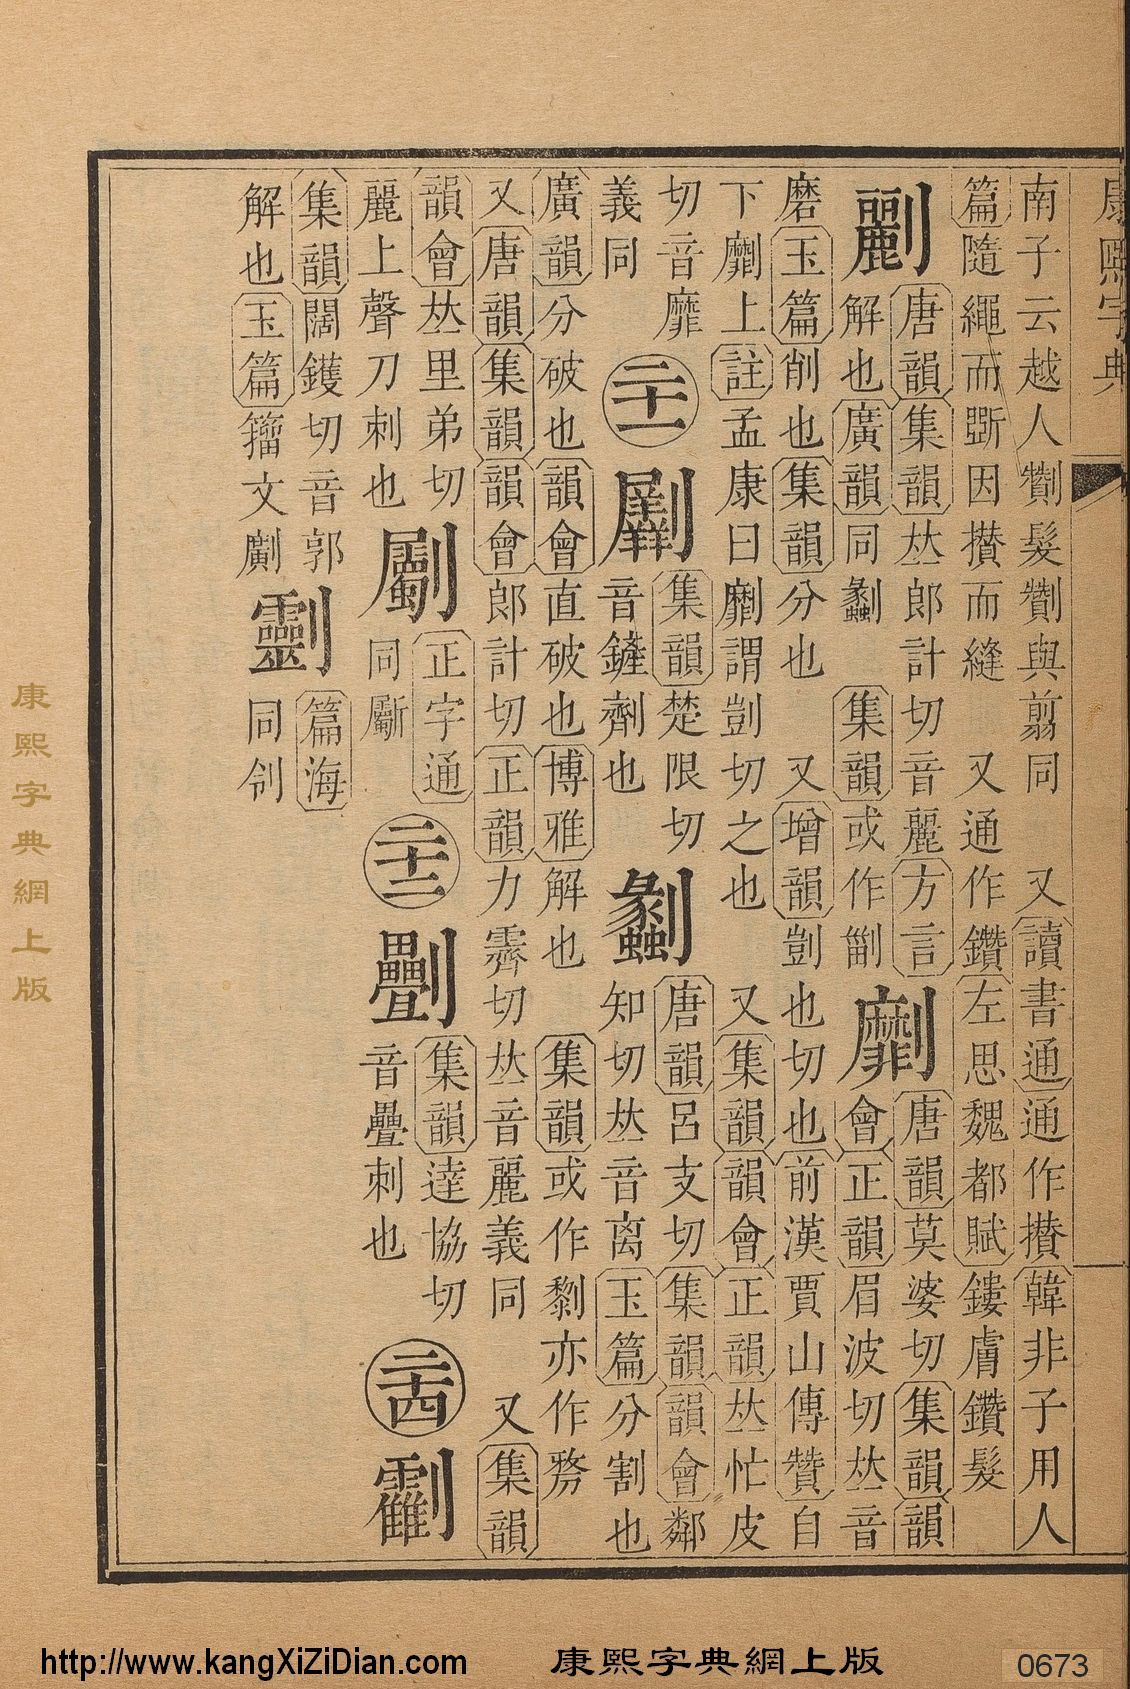 康熙字典
南子云越人劗髮劗與翦同　又讀書通通作攢韓非子用人
篇隨繩而斲因攢而縫　又通作鑽左思魏都賦鏤膚鑽髮
唐韻集韻𠀤郎計切音麗方言
解也廣韻同劙　集韻或作
劘
唐韻莫婆切集韻韻
會正韻眉波切𠀤音
磨玉篇削也集韻分也　又增韻剴也切也前漢賈山傳贊自
下劘上註孟康曰劘謂剴切之也　又集韻韻會正韻𠀤忙皮
切音靡
義同
二十一
集韻楚限切
音鏟劑也
劙
唐韻呂支切集韻韻會鄰
知切𠀤音离玉篇分割也
廣韻分破也韻會直破也博雅解也　集韻或作剺亦作
又唐韻集韻韻會郎計切正韻力霽切𠀤音麗義同　又集韻
韻會𠀤里弟切
麗上聲刀刺也
劚
正字通
同斸
二十二
集韻達協切
音疊刺也
二十四
集韻闊鑊切音郭
解也玉篇籒文
篇海
同刢
康熙字典網上版
http://www.kangXiZiDian.com
康熙字典網上版
0673